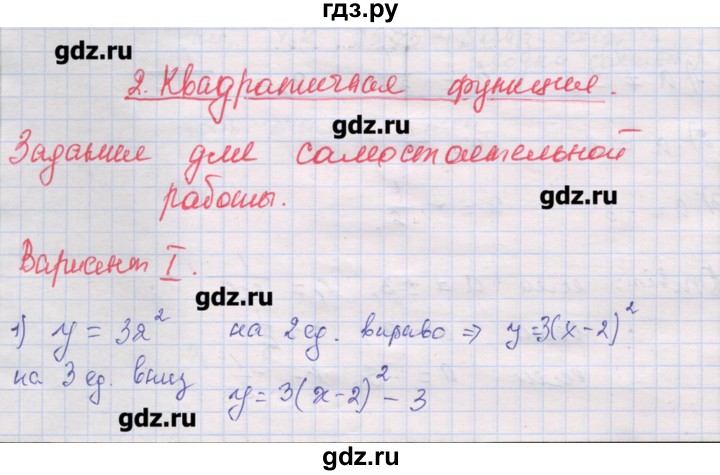 гдз.ру
gdz.ru
2. Квадратичная функция.
gdz.ru
Задания для самостоятельной
gdz.ru
работы.
Вариант I.
gdz.ru
1) y = 3x² на 2 ед. вправо ⇒ y=3(x-2)²
на 3 ед. вниз y = 3(x-2)² - 3
gdz.ru
gdz.ru